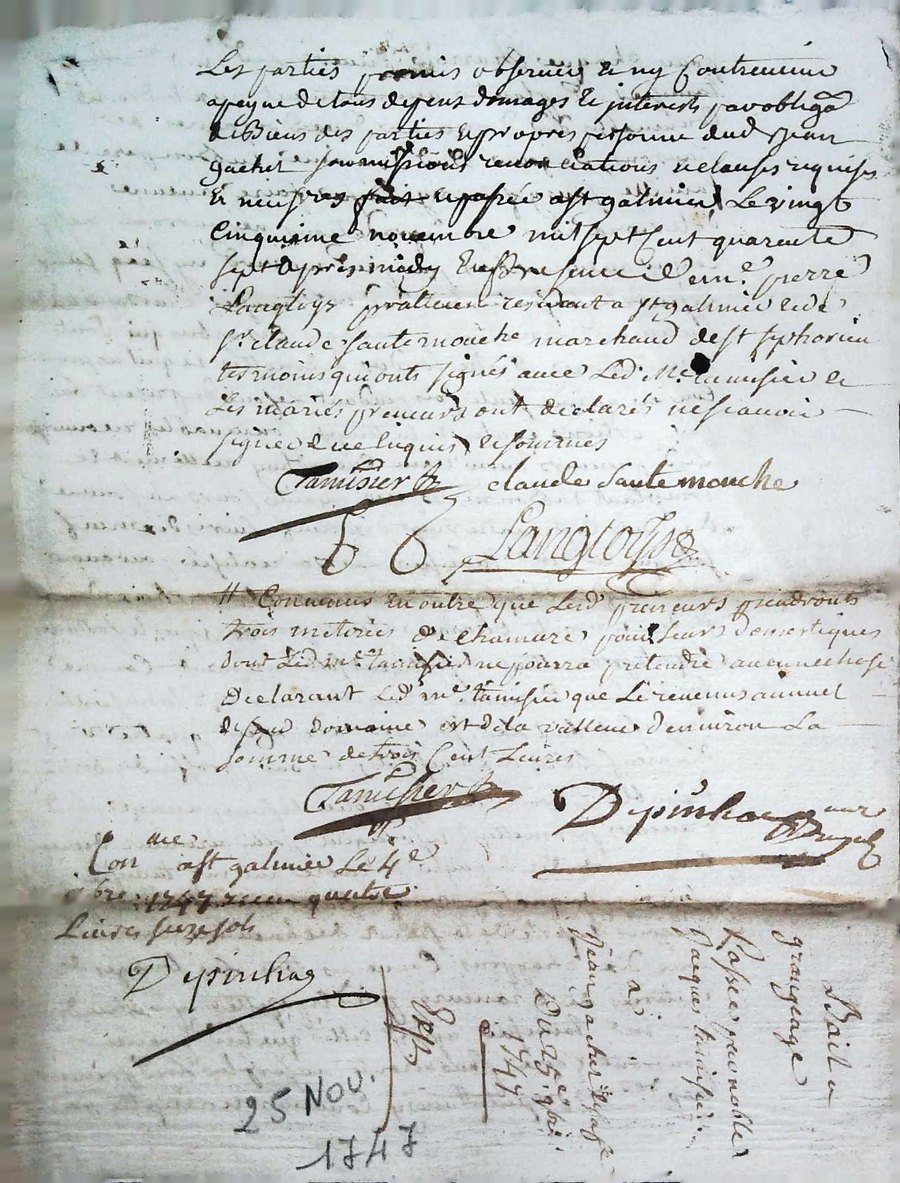 Les parties promis observer et ny contrevenir
a peyne de tous depens domages et interests par obliga
de Biens des parties et propre personne dud Jean
gachet soumissions renonciations et clauses requises
et necess fait et passée a st galmier Le vingt
cinquieme novembre mil sept Cent quarente
sept apres midy En presence de me. pierre
Langloys praticien residant a st galmier et de
sr. claude sautemouche marchand de st syphorien
tesmoins qui onts signés avec Led Me. tamisier et
Les mariés preneurs ont déclarés ne scavoir
signer de ce Enquis et sommés
Tamisier claude sautemouche
Langloys
# Convenus En outre que Lesd preneurs prendronts
trois meterées de chamure pour Leur domestiques
dont Led me. tamisier ne pourra pretendre aucune chose
Declarant Led me. tamisier que Le revenus annuel
dud domaine est de la valleur d'environ La
somme de trois Cent Livres
Tamisier
Depinhac
Con a st galmier Le 4e
xbre 1747 receu quatre
Livres seize sols
Depinhac
Bail a
grangeage
Jacques tamisier
a
Jean gachet
Du 25e. 9bre.
1747
Expé
25 Nov.
1747